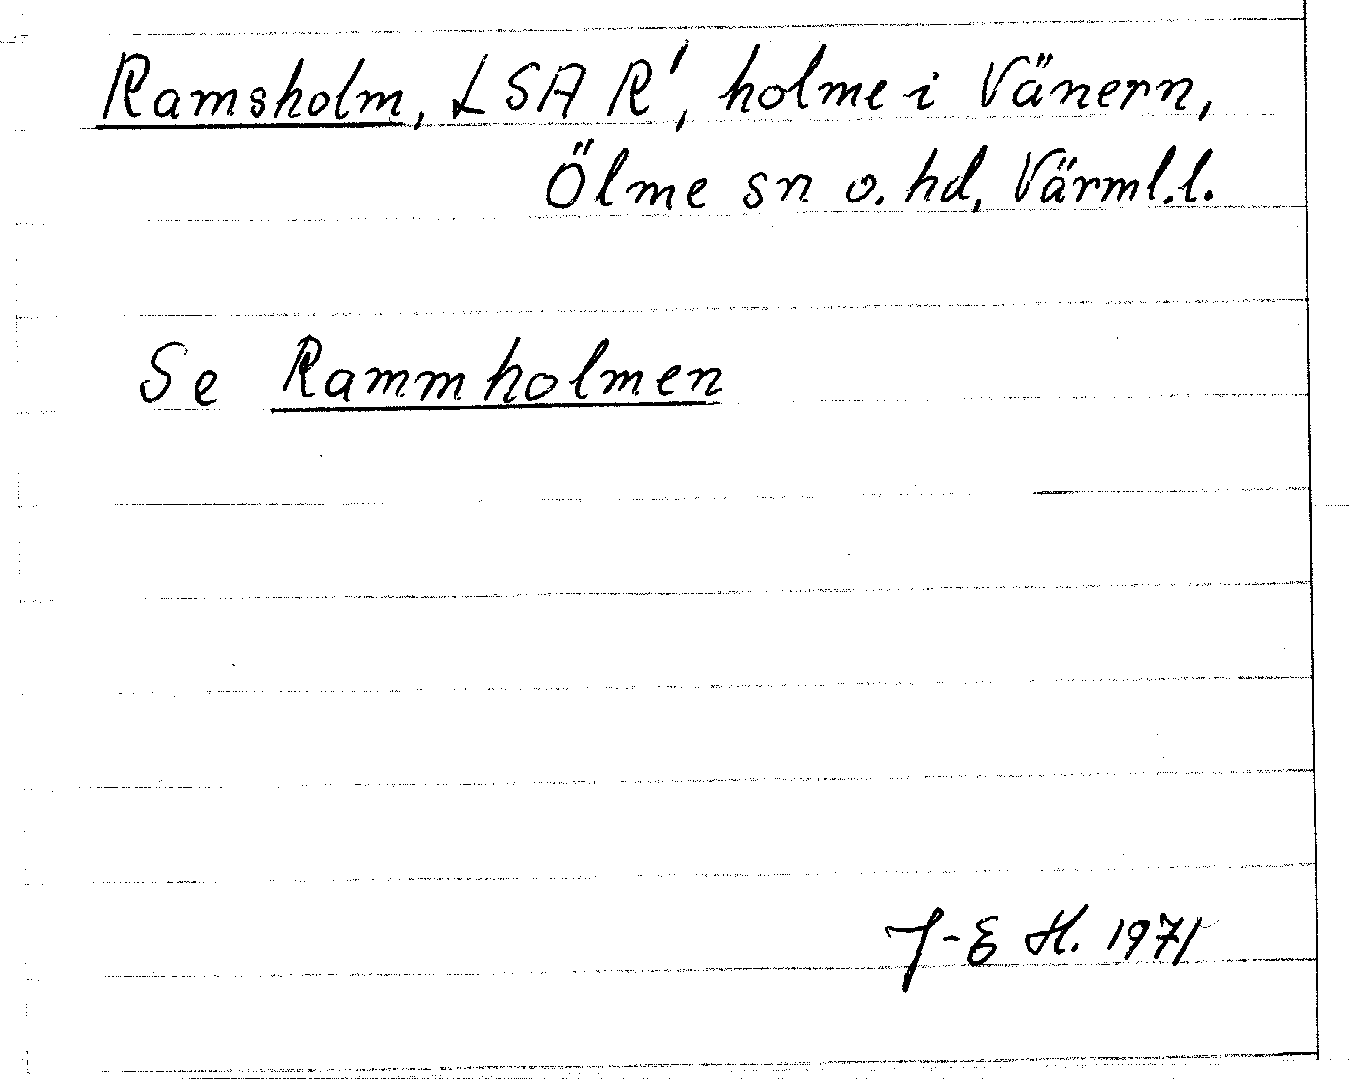 Ramsholm, LSA R', holme i Vänern,
Ölme sn o. hd, Värml.l.
Se Rammholmen
J-E H. 1971